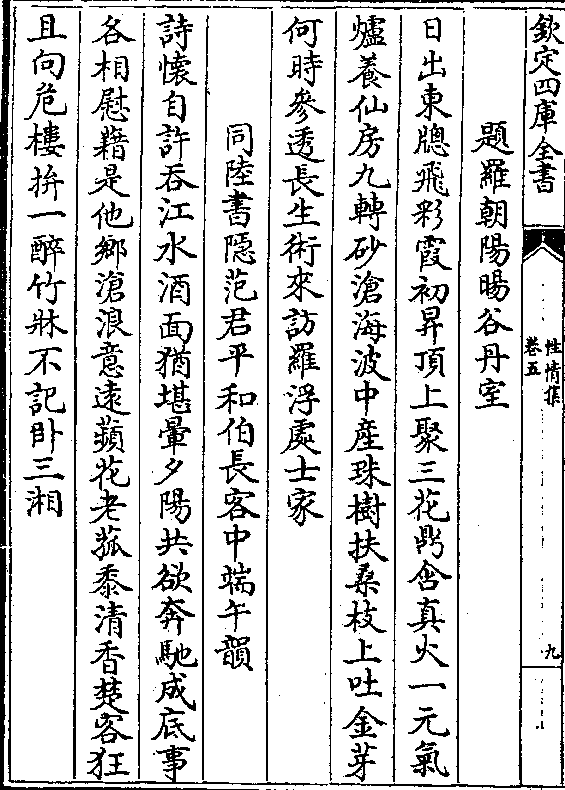 欽定四庫全書
性情集
卷五
九
題羅朝陽暘谷丹室
日出東牕飛彩霞初昇頂上聚三花鼎含真火一元氣
爐養仙房九轉砂滄海波中産珠樹扶桑枝上吐金芽
何時參透長生術來訪羅浮處士家
同陸書隠范君平和伯長客中端午韻
詩懷自許吞江水酒面猶堪暈夕陽共欲奔馳成底事
各相慰藉是他鄉滄浪意遠蘋花老菰黍清香楚客狂
且向危樓拚一醉竹牀不記卧三湘